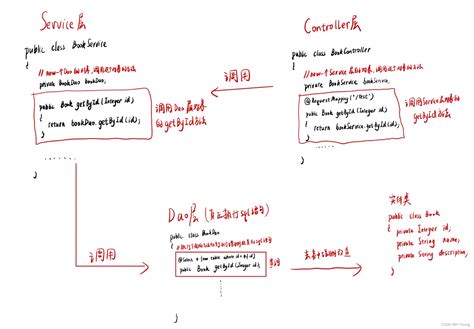 Service层
public class BookService
{
private BookDao bookDao;
public Book getById(Integer id)
{
return bookDao.getById(id);
}
调用Dao层对象
的getById方法
调用
Controller层
public class BookController
{
private BookService bookService;
@RequestMapping("/test")
public Book getById(Integer id)
{
return bookService.getById(id);
}
调用Service层对象
getById方法
调用
Dao层(真正执行sql语句)
public class BookDao
{
public Book getById(Integer id);
查询
}
实体类
public class Book
{
private Integer id;
private String name;
private String description;
}